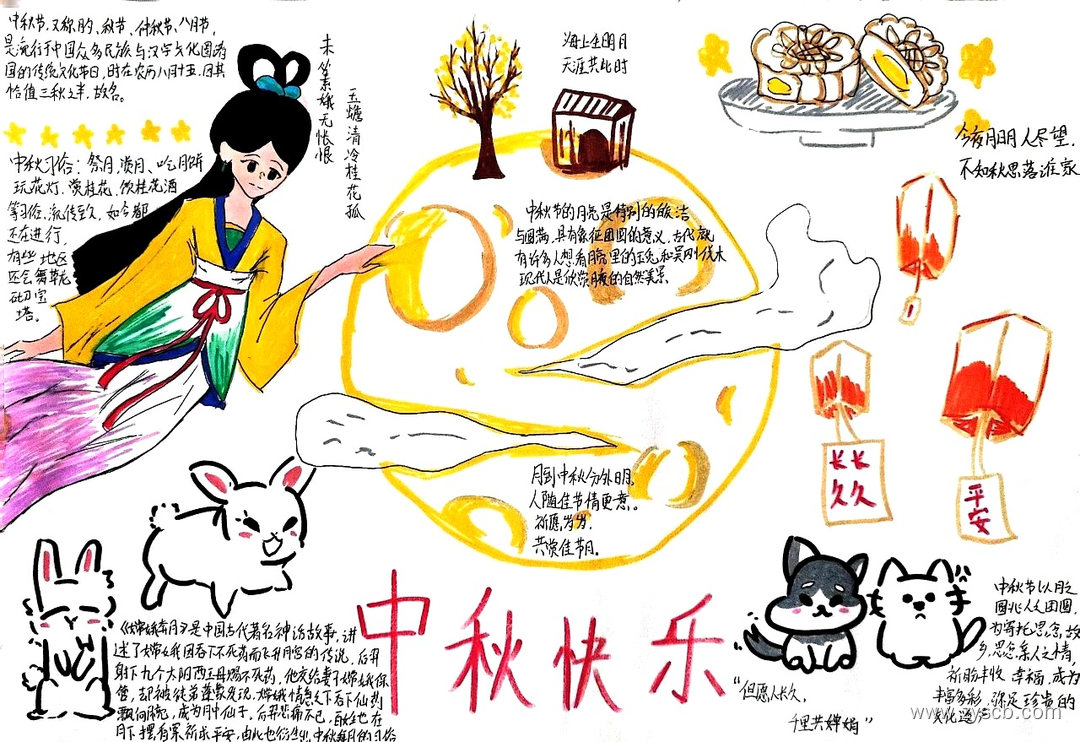 中秋节，又称月夕、秋节、仲秋节、八月节，
是流行于中国众多民族与汉字文化圈诸
国的传统文化节日，时在农历八月十五，因其
恰值三秋之半，故名。
中秋习俗：祭月、赏月、吃月饼
玩花灯、赏桂花、饮桂花酒
等习俗，流传至今，如今都
还在进行，
有些地区
还会舞草龙
砌宝
塔。
未
素娥无怅恨
玉蟾清冷桂花孤
海上生明月
天涯共此时
今夜月明人尽望，
不知秋思落谁家
中秋节的月亮是特别的皎洁
与圆满，具有象征团圆的意义，古代就
有许多人想看月亮里的玉兔和吴刚伐木
现代人是欣赏月夜的自然美景
月到中秋分外明。
人随佳节情更意。
祈愿岁岁，
共赏佳节月。
长长
久久
平安
中秋快乐
《嫦娥奔月》是中国古代著名神话故事，讲
述了嫦娥因吞下不死药而飞升月宫的传说，后羿
射下九个太阳西王母赐不死药，他交给妻子嫦娥保
管，却被徒弟蓬蒙发现，嫦娥情急之下吞下仙药
飘向月亮，成为月中仙子，后羿悲痛不已，
月下摆有果祈求平安，由此也衍生出中秋拜月的习俗
"但愿人长久，
千里共婵娟"
中秋节以月之
圆兆人之团圆，
为寄托思念故
乡，思念亲人之情，
祈盼丰收、幸福，成为
丰富多彩、弥足珍贵的
文化遗产
www.zyscb.com